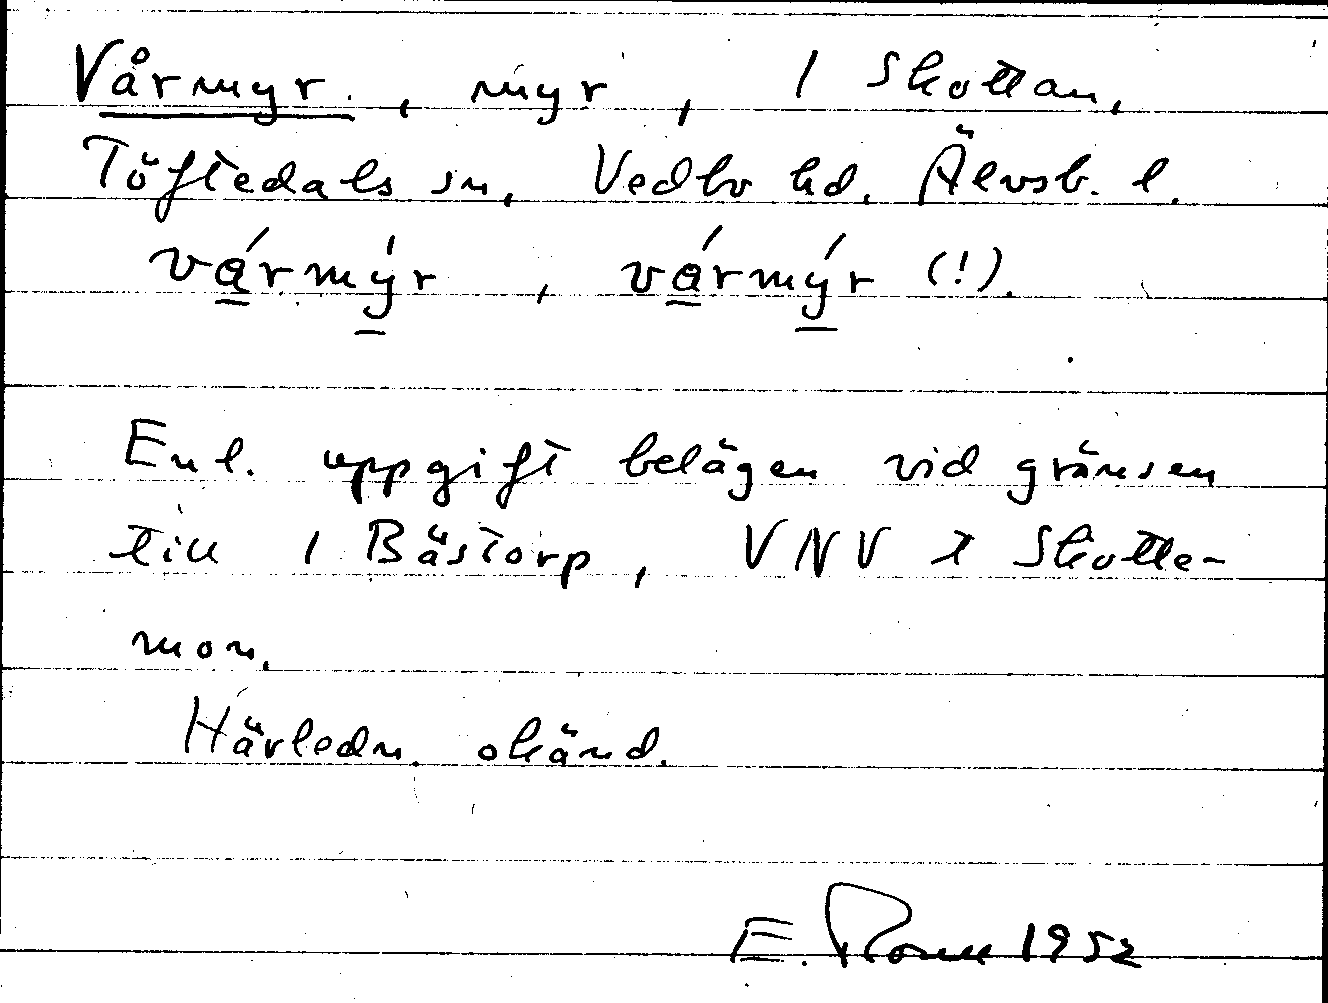 Vårmyr., myr, 1 Skottan,
Töftedals sn, Vedbo hd. Älvsb. l.
vá̱rmý̱r, vá̱rmý̱r (!).
Enl. uppgift belägen vid gränsen
till 1 Bästorp, VNV t Skotte-
mon.
Härledn. okänd.
E. 1952